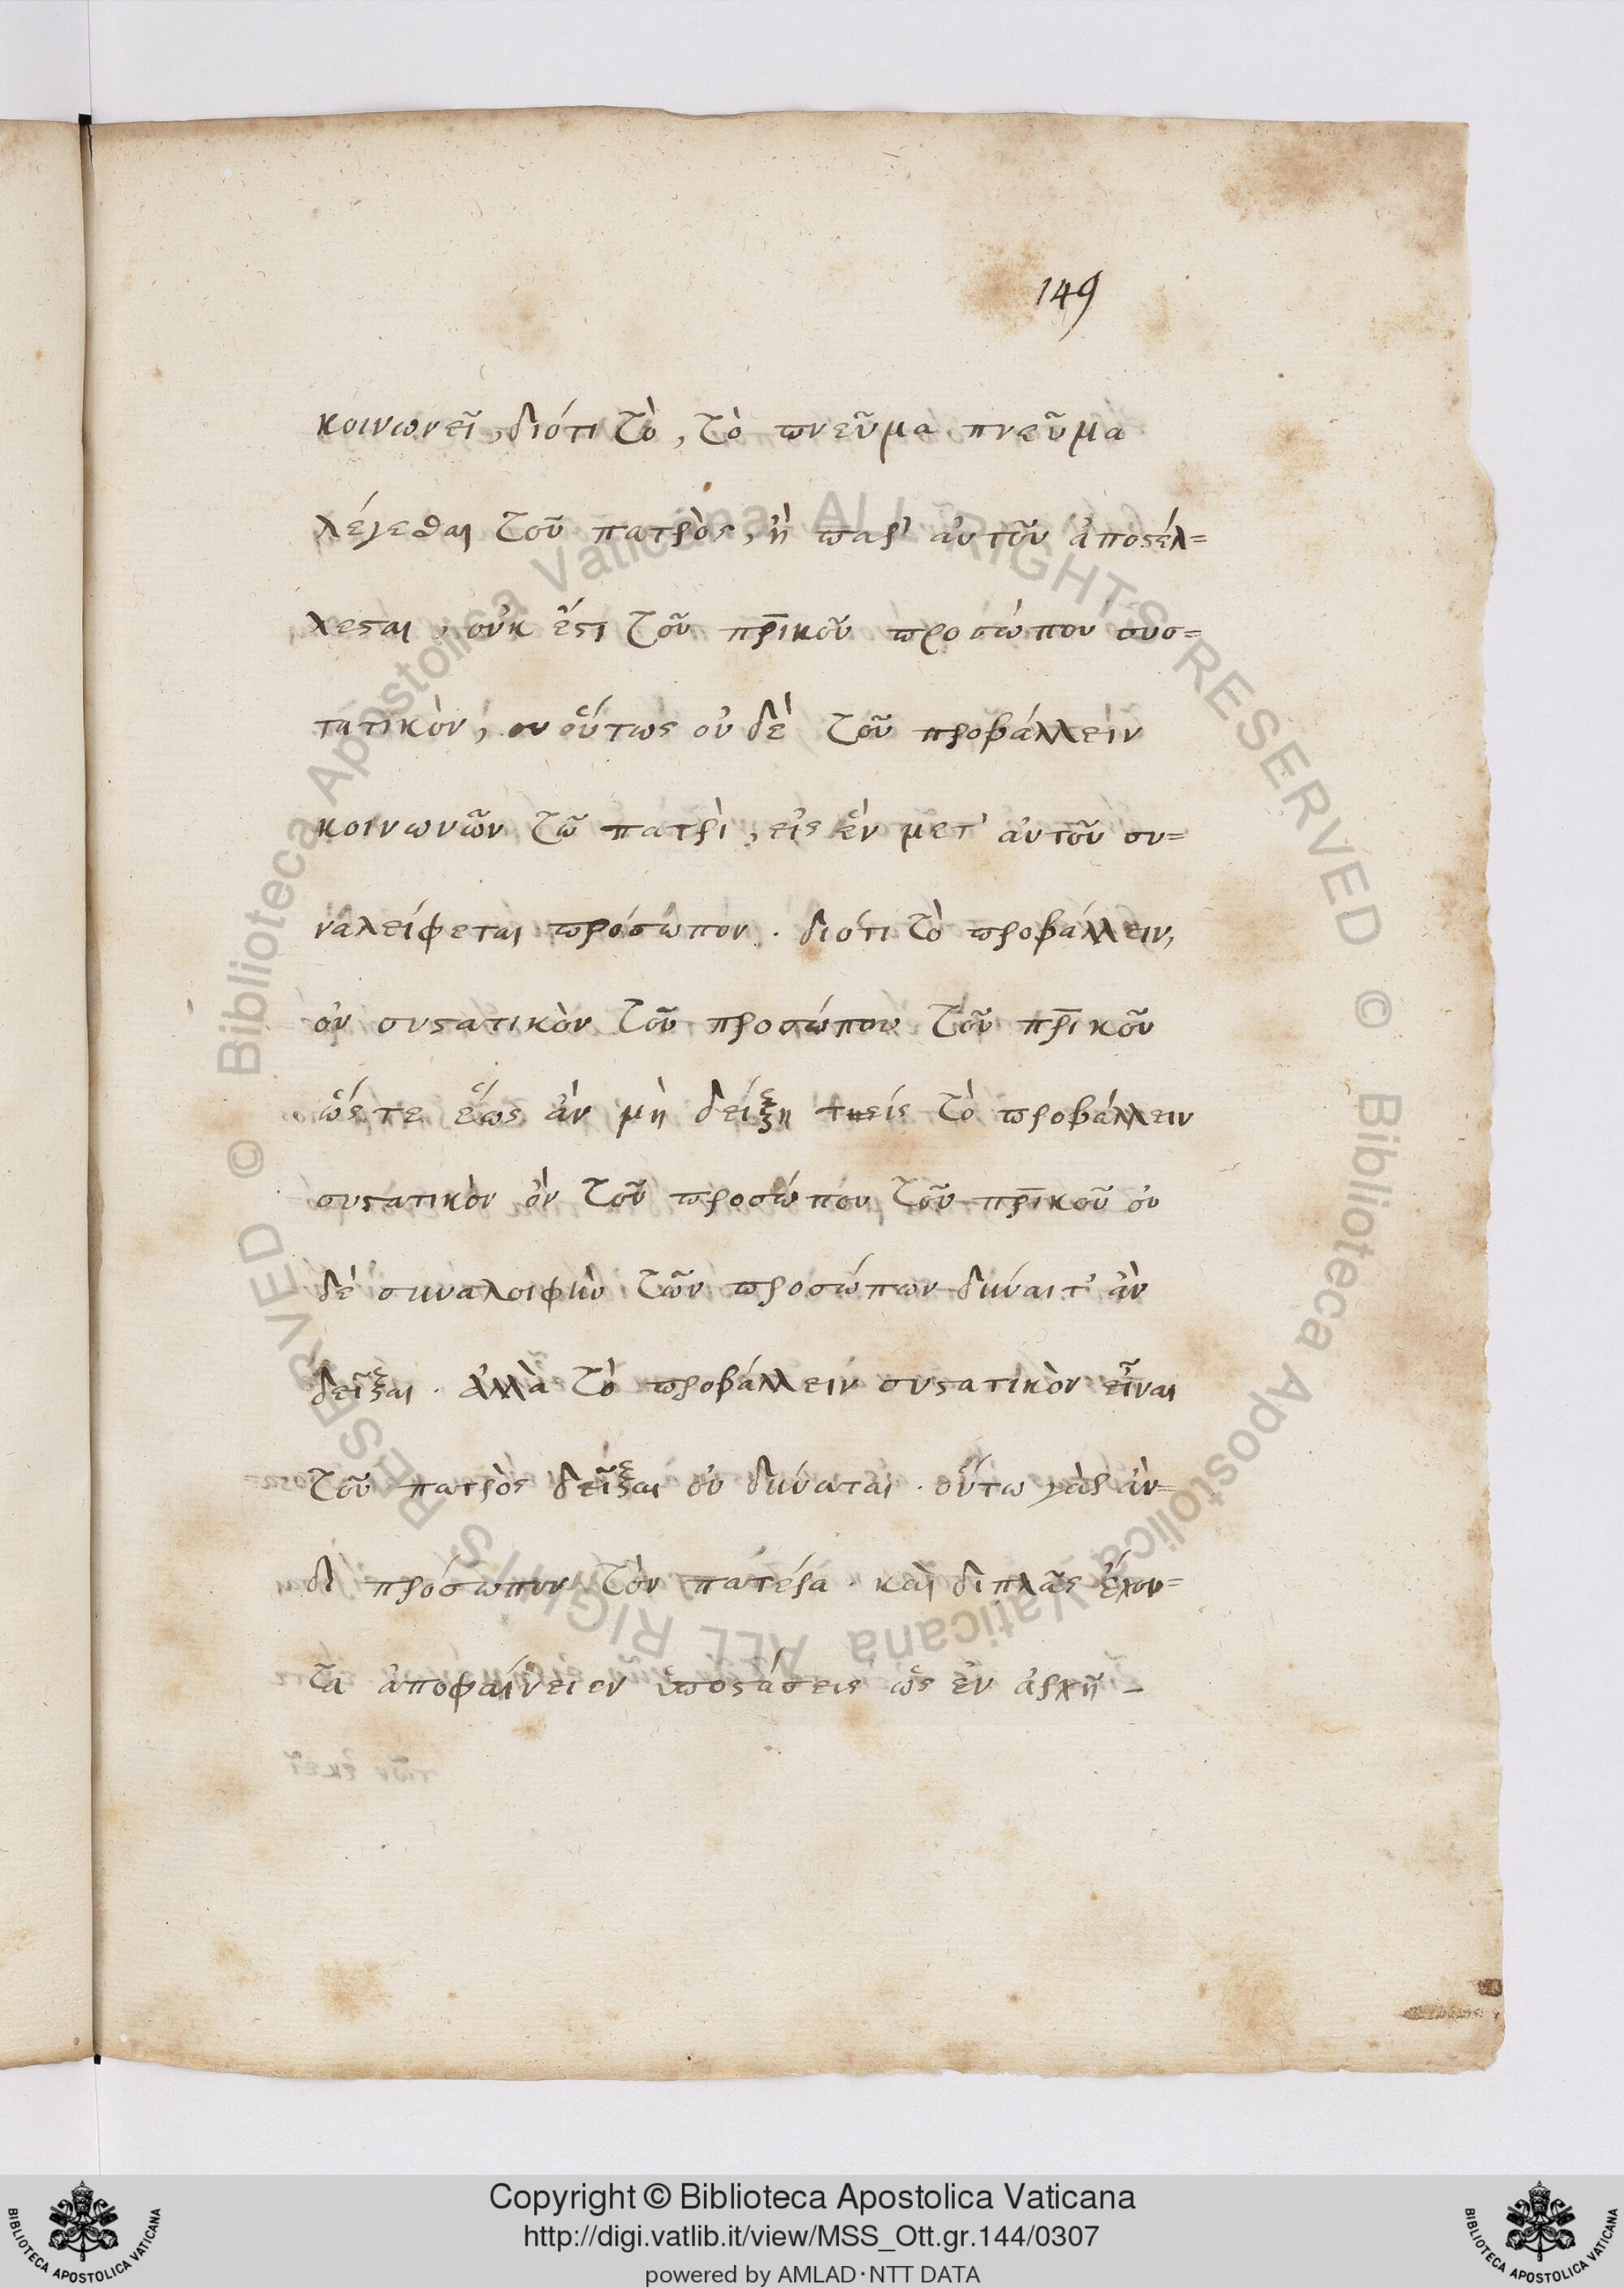 149
κοινωνεῖ, διότι τὸ, τὸ πνεῦμα πνεῦμα
λέγεσθαι τοῦ πατρὸς, ἢ παρ' αὐτοῦ ἀποστέλ=
λεσται, οὐκ ἔστι τοῦ πρ̅ικοῦ προσώπου συσ=
τατικὸν, οὕτως οὐ δὲ τοῦ προβάλλειν
κοινωνῶν τῶ πατρὶ, εἰς ἓν μετ' αὐτοῦ συ=
ναλείφεται πρόσωπον . διότι τὸ προβάλλειν,
οὐ συστατικὸν τοῦ προσώπου τοῦ πρ̅ικοῦ
ὥστε ἕως ἂν μὴ δείξῃ τὶς τὸ προβάλλειν
συστατικὸν ὂν τοῦ προσώπου τοῦ πρ̅ικοῦ οὐ
δὲ συναλοιφὴν τῶν προσώπων δύναιτ' ἂν
δεῖξαι . ἀλλὰ τὸ προβάλλειν συστατικὸν εἶναι
τοῦ πατρὸς δεῖξαι οὐ δύναται . οὕτω γὰρ ἀν=
δι πρόσωπον τὸν πατέρα . καὶ διπλᾶς ἔχον=
τα ἀποφαίνειεν ὑποστάσεις ὡς ἐν ἀρχῇ –
Copyright © Biblioteca Apostolica Vaticana
http://digi.vatlib.it/view/MSS_Ott.gr.144/0307
powered by AMLAD·NTT DATA
BIBLIOTECA APOSTOLICA VATICANA
BIBLIOTECA APOSTOLICA VATICANA
© Biblioteca Apostolica Vaticana ALL RIGHTS RESERVED © Biblioteca Apostolica Vaticana ALL RIGHTS RESERVED